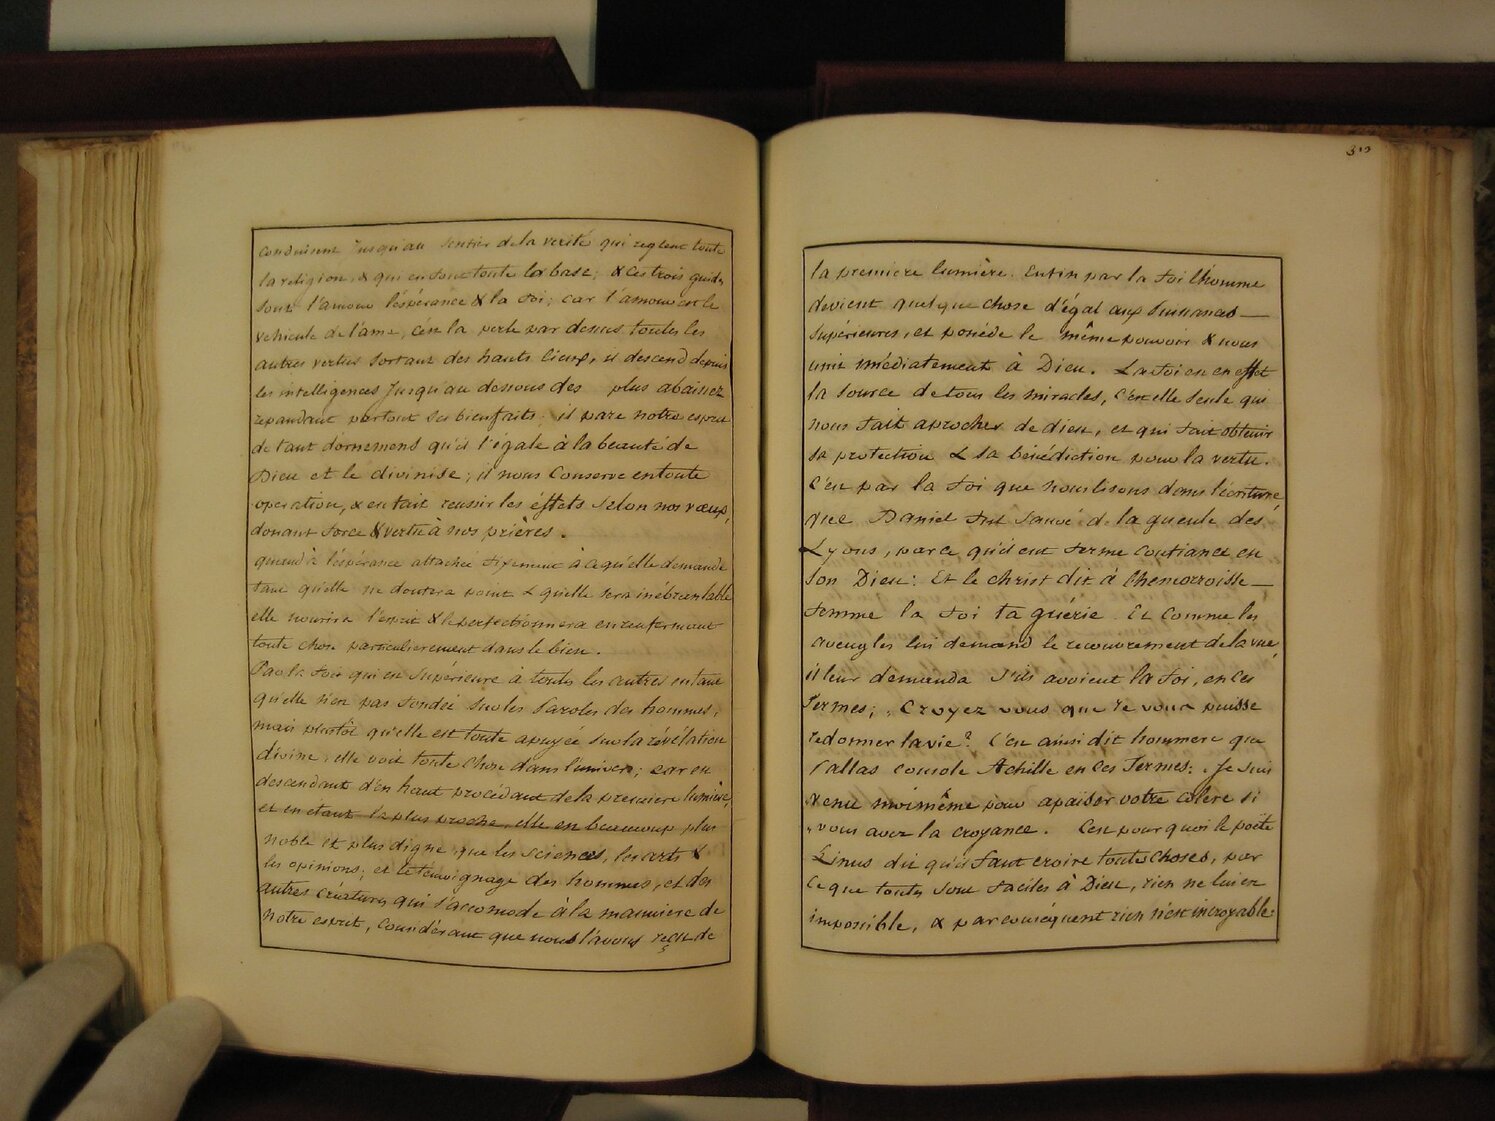 conduisent jusqu'au sentier de la verité qui reglent toute
la religion, & qui en sont toute la base; & ces trois guides
sont l'amour l'espérance & la foi; car l'amour est le
vehicule de l'ame, c'est la perle par dessus toutes les
autres vertus sortant des hauts lieux, il descend depuis
les intelligences jusqu'au dessous des plus abaissez
repandant partout ses bienfaits. il pare notre esprit
de tant d'ornemens qu'il l'égale à la beauté de
Dieu et le divinise; il nous conserve en toute
operation, & en fait reussir les éffets selon nos vœux,
donant force & vertu à nos prières.
quand à l'espérance attachée fixement à ce qu'elle demande
tant qu'elle ne doutera point & qu'elle sera inébranlable
elle nourira l'esprit & le perfectionnera en renfermant
toute chose particulierement dans le bien.
Par la foi qui est supérieure à toutes les autres entant
qu'elle n'est pas fondée sur les paroles des hommes,
mais plustôt qu'elle est toute apuyée sur la révélation
divine, elle voit toute chose dans l'univers; car en
descendant d'en haut procédant de la premiere lumière,
et en etant la plus proche, elle est beaucoup plus
noble et plus digne que les sciences, les arts &
les opinions; et le témoignage des hommes, et des
autres créatures qui s'accomode à la manniere de
notre esprit, considérant que nous l'avons reçu de
313
la premiere lumière. Enfin par la foi l'homme
devient quelque chose d'égal aux puissances
supérieures, et posséde le même pouvoir & nous
unit imédiatement à Dieu. La foi est en effet
la source de tous les miracles, c'est elle seule qui
nous fait aprocher de dieu, et qui fait obtenir
sa protection & sa bénédiction pour la vertu.
C'est par la foi que nous lisons dans l'écriture
que Daniel fut sauvé de la gueule des
Lyons, parce qu'il eut ferme confiance en
son Dieu: Et le christ dit à l'hemorroisse
femme la foi t'a guérie. Et comme les
aveugles lui demand le recouvrement de la vue,
il leur demanda s'ils avoient la foi, en ces
termes; "Croyez vous que je vous puisse
redonner la vie? C'est ainsi dit hommere que
Pallas console Achille en ces termes: "Je suis
venu moi même pour apaiser votre colère si
"vous avez la croyance. C'est pourquoi le poête
Linus dit qu'il faut croire toutes choses, par
ce que toutes sont faciles à Dieu, rien ne lui est
impossible, & par conséquent rien n'est incroyable: